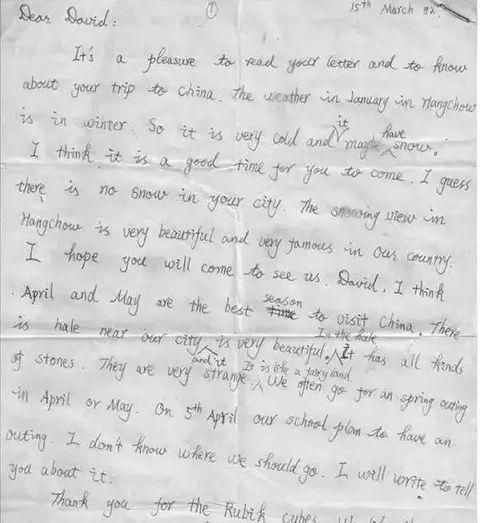 ①
15th March 82.
Dear David:
It's a pleasure to read your letter and to know
about your trip to China. The weather in January in Hangchow
is in winter. So it is very cold and it may have snow.
I think it is a good time for you to come. I guess
there is no snow in your city. The snowing view in
Hangchow is very beautiful and very famous in our country.
I hope you will come to see us. David, I think
April and May are the best season to visit China. There
is hale near our city and it is very beautiful. In the hale It has all kinds
of stones. They are very strange. It is like a fairy land We often go for an spring outing
in April or May. On 5th April our school plan to have an
outing. I don't know where we should go. I will write to tell
you about it.
Thank you for the Rubik cubes.